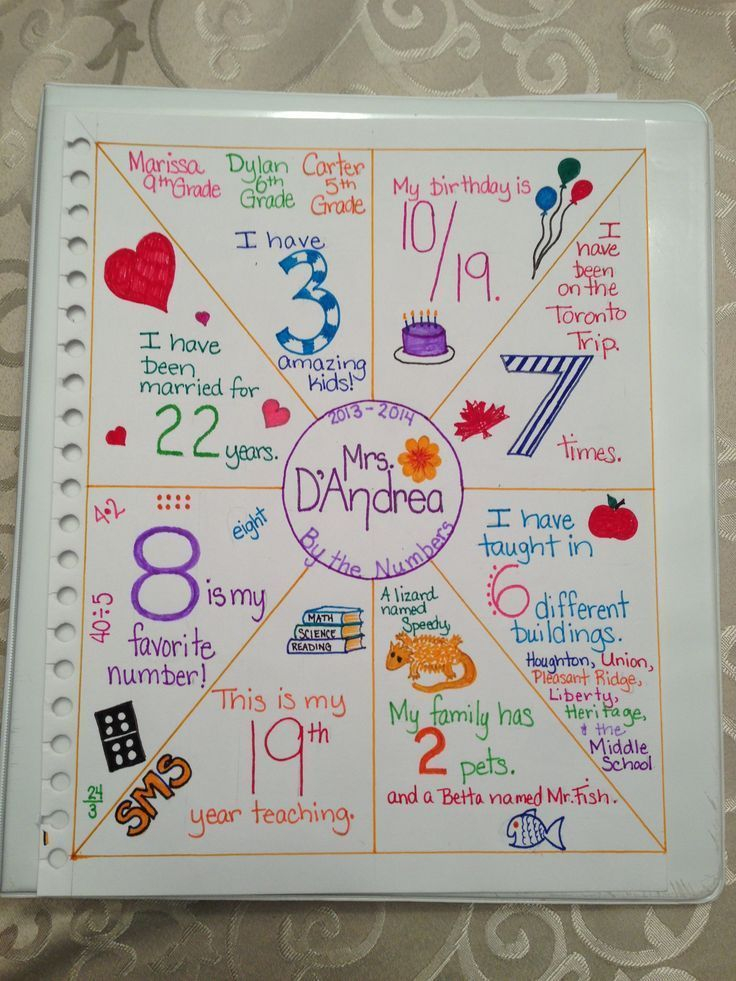 Marissa
9th Grade
Dylan
6th
Grade
Carter
5th
Grade
I have
3
amazing
kids!
My birthday is
10/19.
I
have
been
on the
Toronto
Trip.
7
times.
I have
been
married for
22 years.
2013-2014
Mrs.
D'Andrea
By the Numbers
4·2
eight
8 is my
favorite
number!
40÷5
24
3
I have
taught in
6 different
buildings.
Houghton, Union,
Pleasant Ridge,
Liberty,
Heritage,
& the
Middle
School
MATH
SCIENCE
READING
This is my
19th
year teaching.
SMS
A lizard
named
Speedy,
My family has
2
pets.
and a Betta named Mr. Fish.